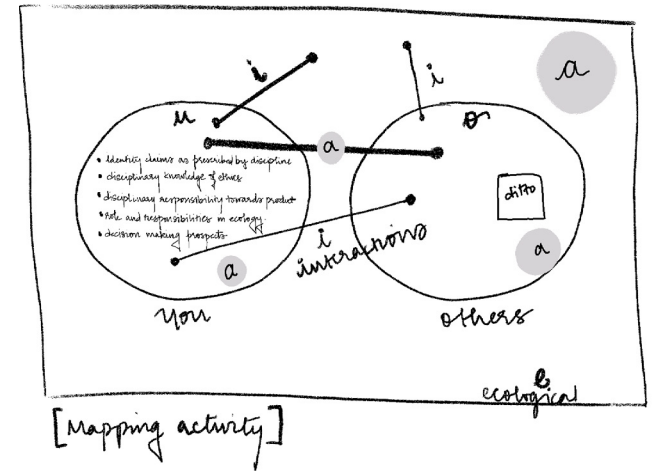 i
i
a
u
o
a
• Identity claims as prescribed by discipline
• disciplinary knowledge of ethics
• disciplinary responsibility towards product
• Role and Responsibilities in ecology
• decision making prospects
ditto
i
interactions
a
a
you
others
e
ecological
[Mapping activity]